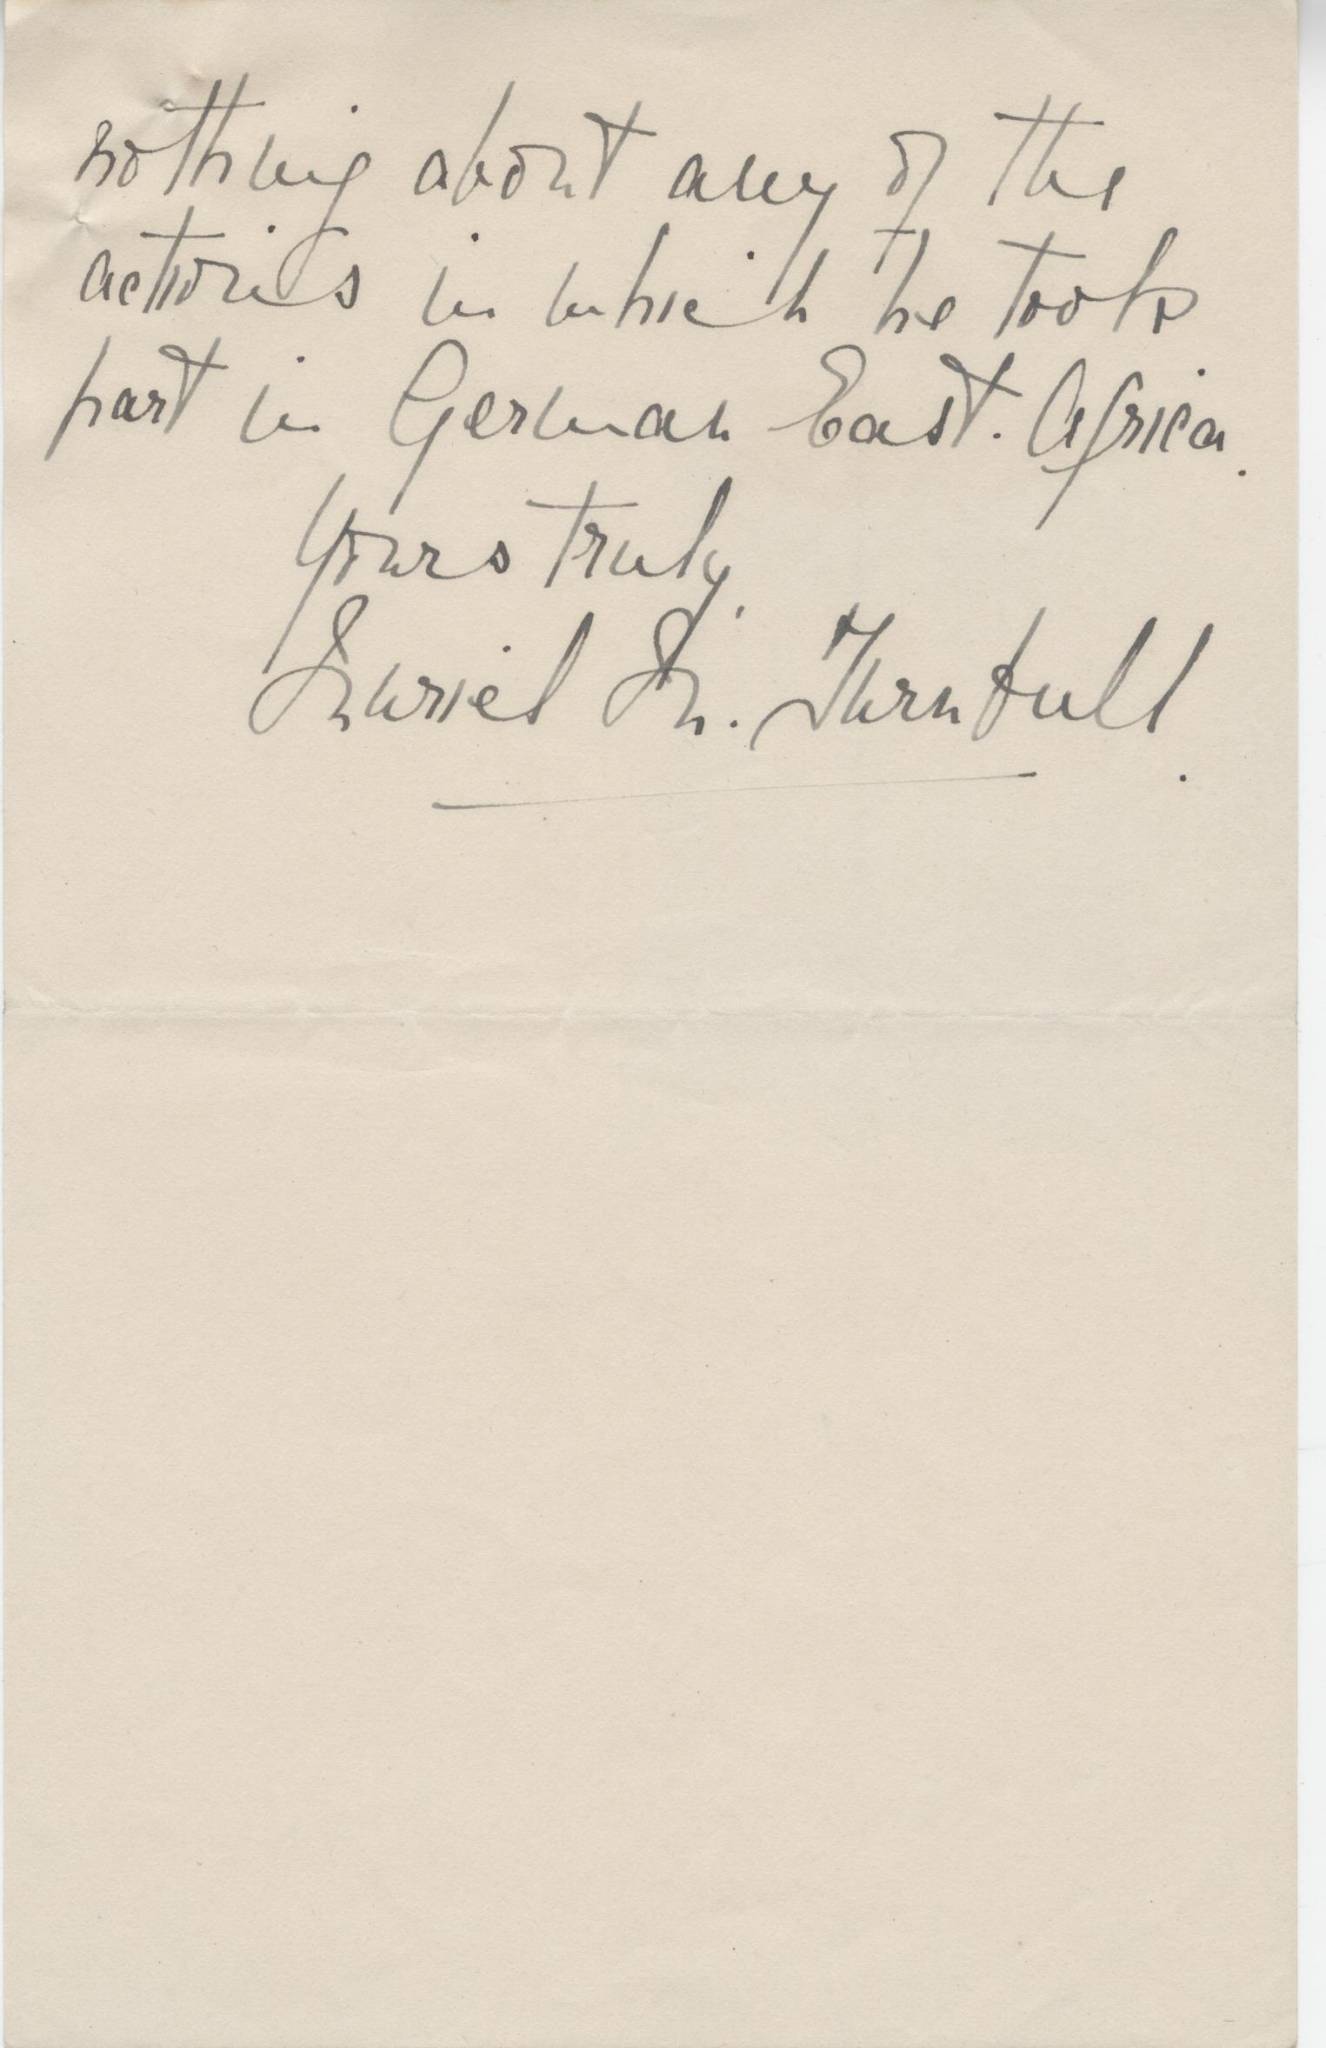 nothing about any of the
actions in which he took
part in German East. Africa.
Yours truly,
Muriel M. Turnbull.